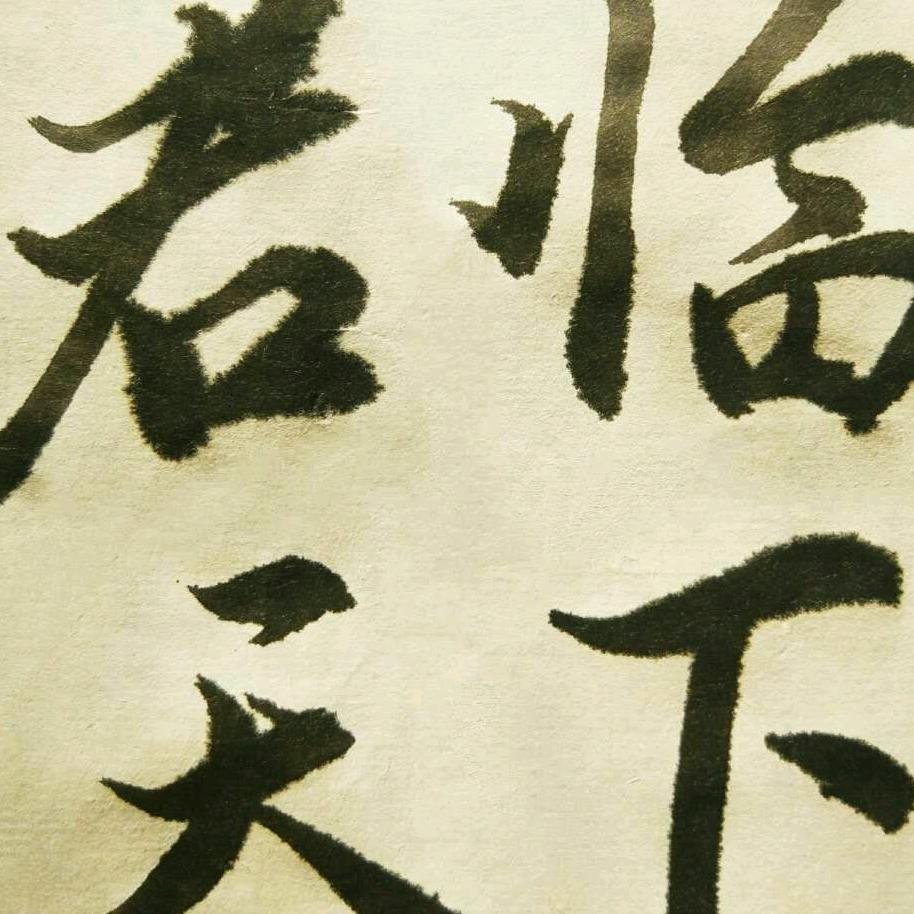 临下
君天